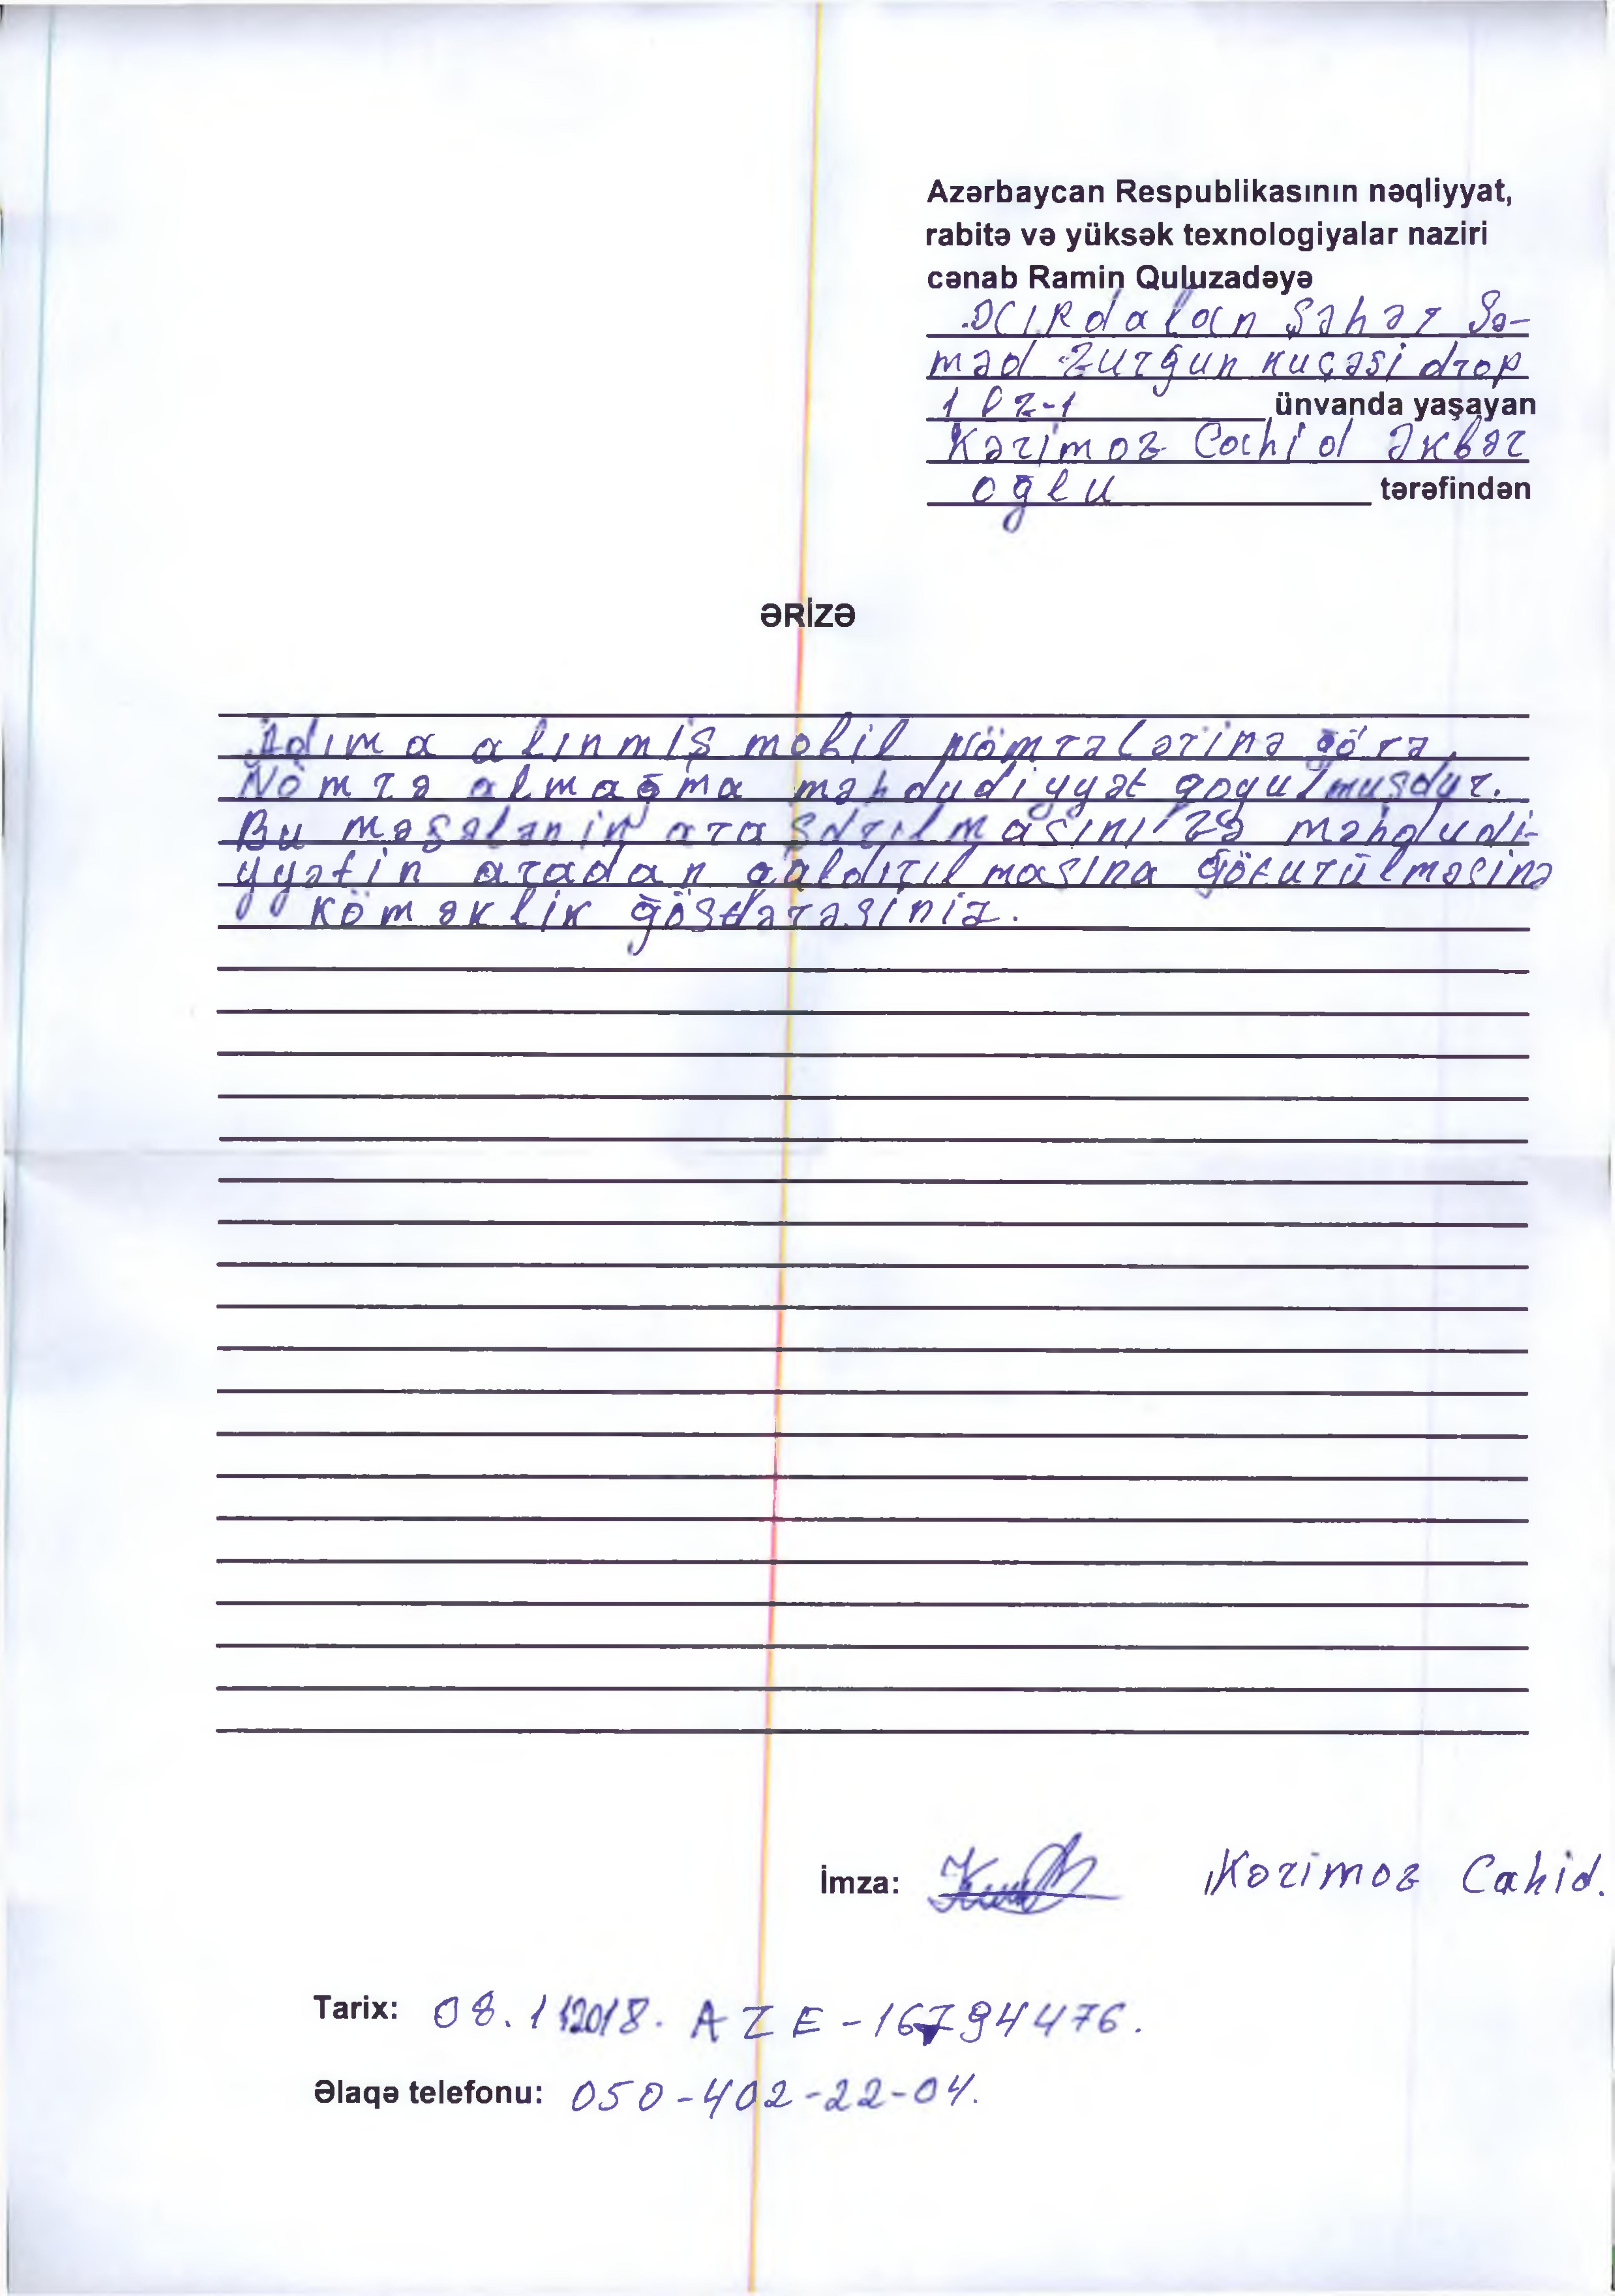 Azərbaycan Respublikasının nəqliyyat,
rabitə və yüksək texnologiyalar naziri
cənab Ramin Quluzadəyə
Xırdalan Şəhər Sə-
məd Vurğun kuçəsi drop
102-1 ünvanda yaşayan
Kərimov Cahid Əkbər
oğlu tərəfindən
ƏRİZƏ
Adıma alınmış mobil nömrələrinə görə.
Nömrə almağma məhdudiyyət qoyulmuşdur.
Bu məsələnin araşdırılmasını və məhdudi-
yyətin aradan qaldırılmasına götürülməsinə
köməklik göstərəsiniz.
İmza: Kərimov Cahid.
Tarix: 08.11.2018. AZE-16794476.
Əlaqə telefonu: 050-402-22-04.